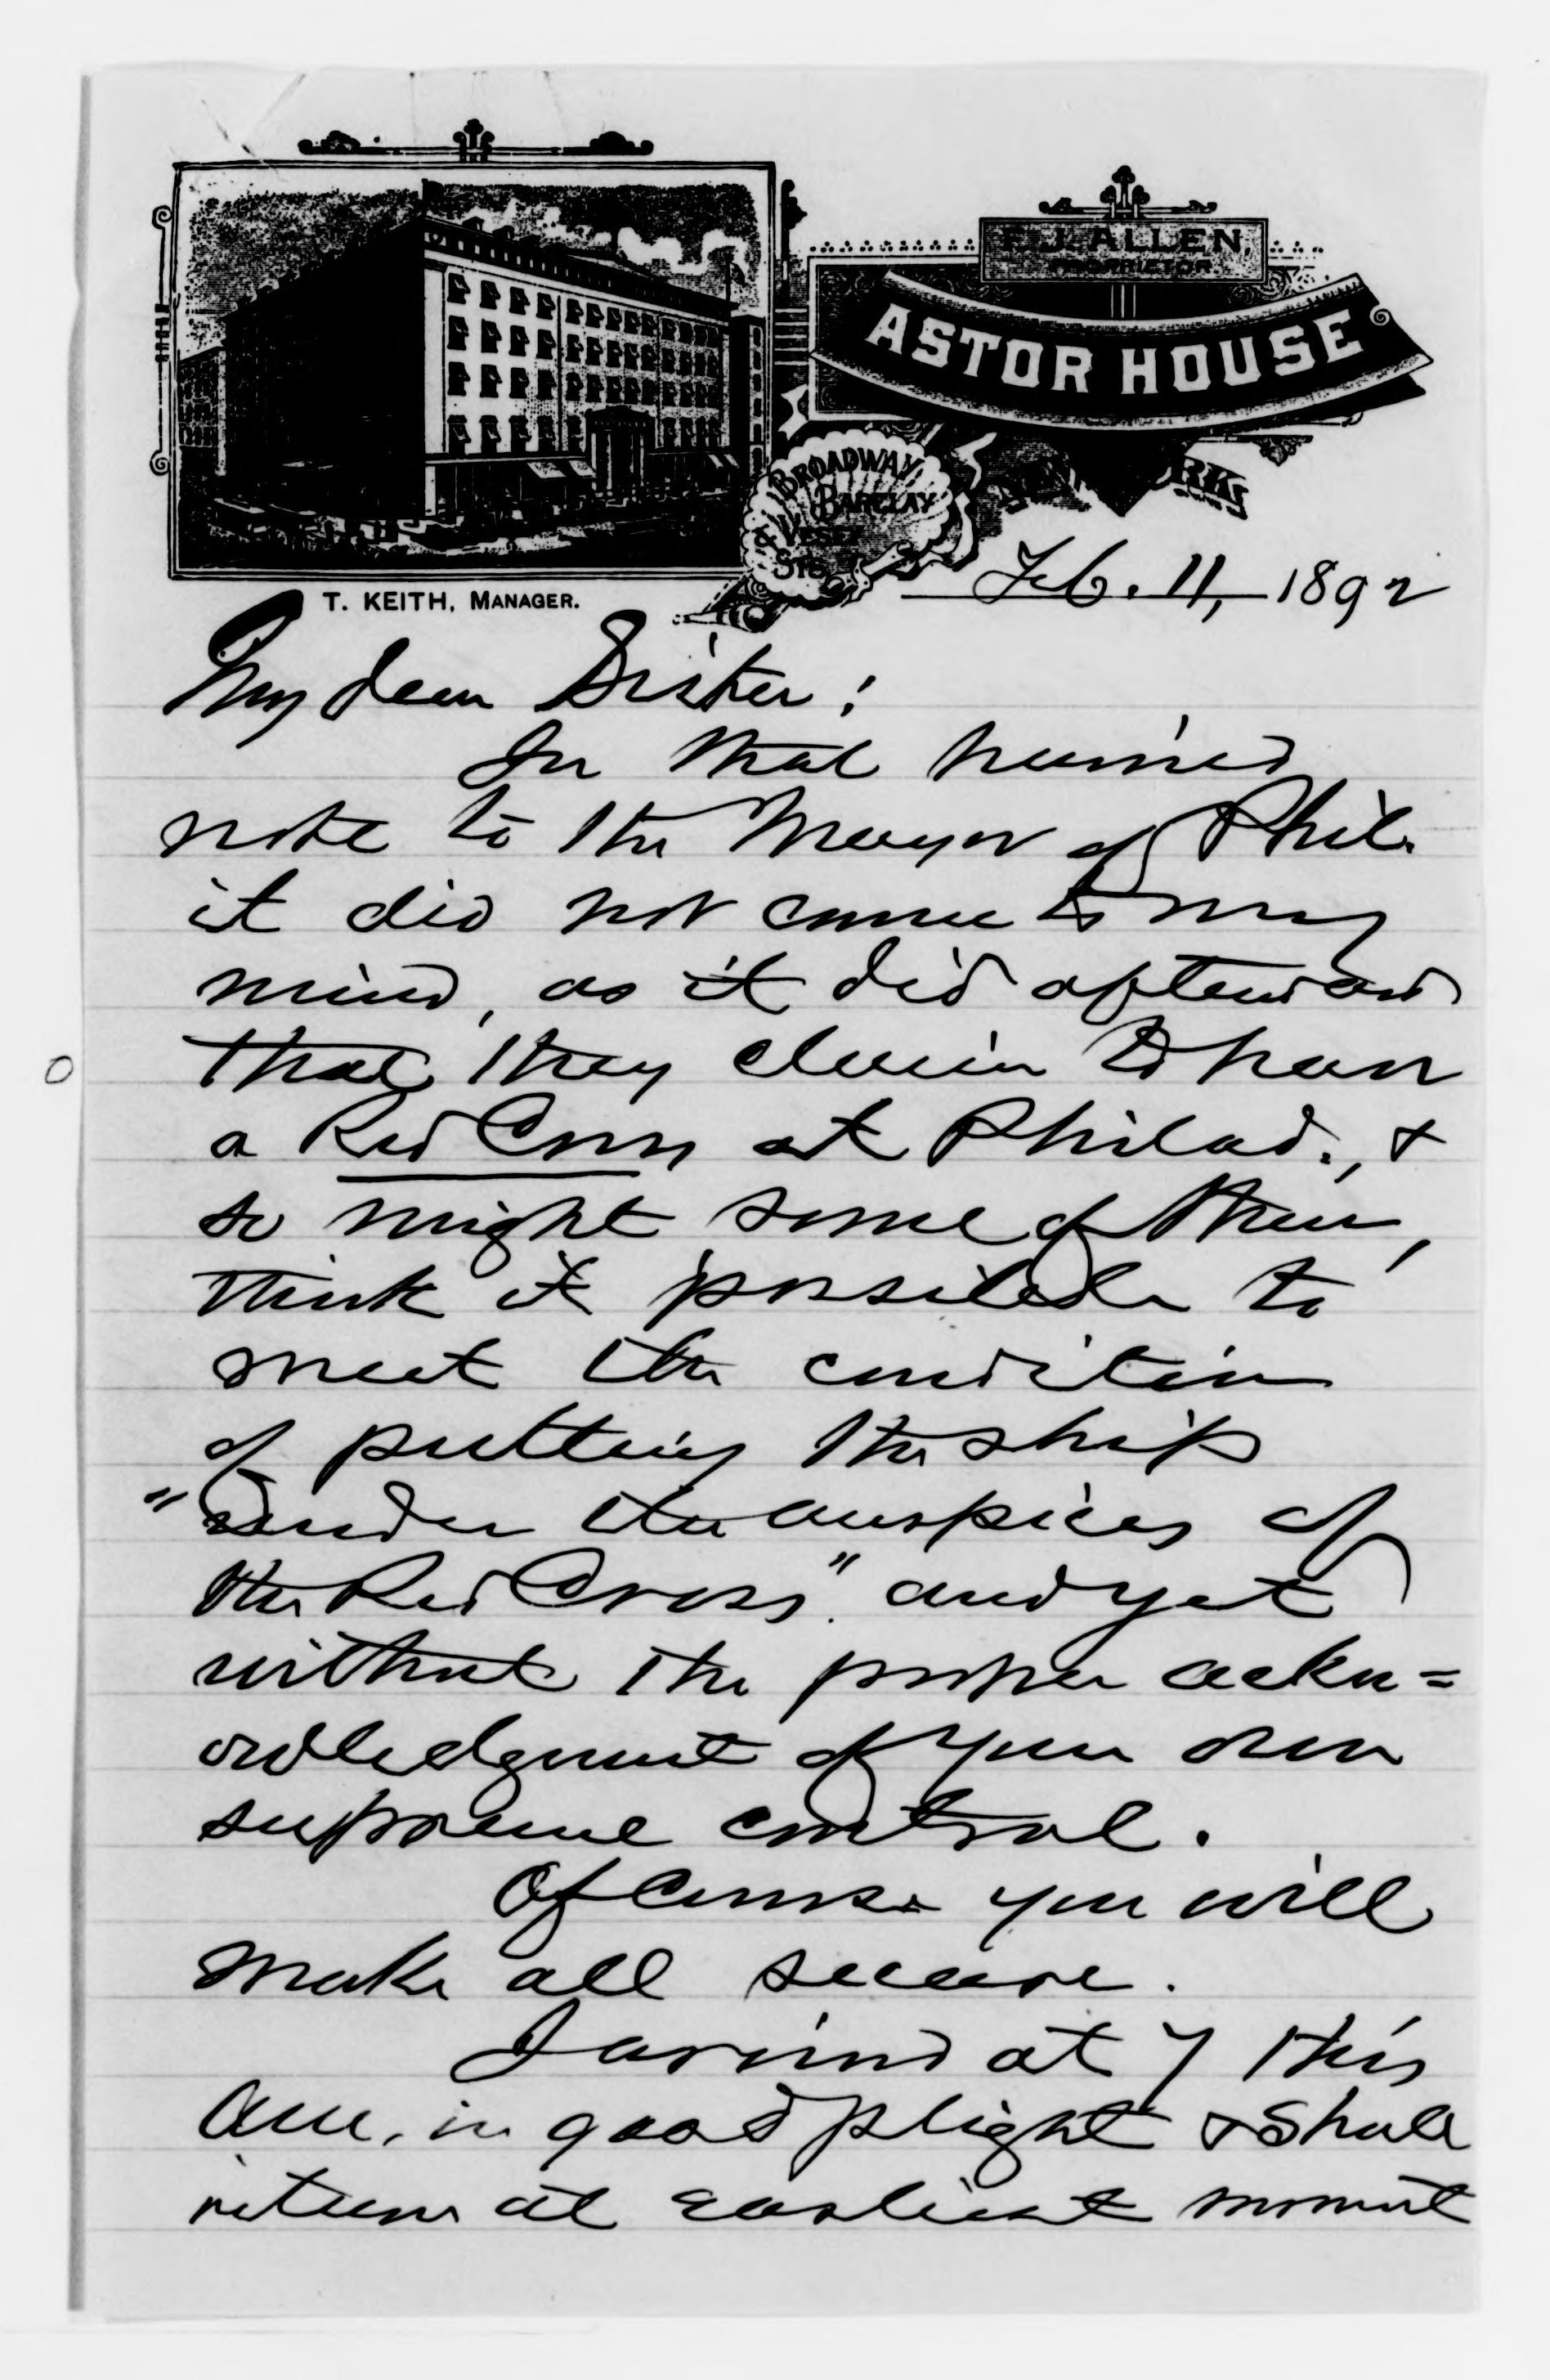 F. J. ALLEN,
PROPRIETOR
ASTOR HOUSE
BROADWAY,
BARCLAY
& VESEY
STS
NEW YORK,
T. KEITH, MANAGER.
Feb. 11, 1892
My dear Sister:
In that hurried
note to the Mayor of Phil.
it did not come to my
mind, as it did afterward
that they claim to have
a Red Cross at Philad., &
so might some of them,
think it possible to
meet the condition
of putting the ship
"under the auspices of
the Red Cross" and yet
without the proper ackn=
owledgment of your own
supreme control.
Of course you will
make all secure.
I arrived at 7 this
eve, in good plight & shall
return at earliest moment